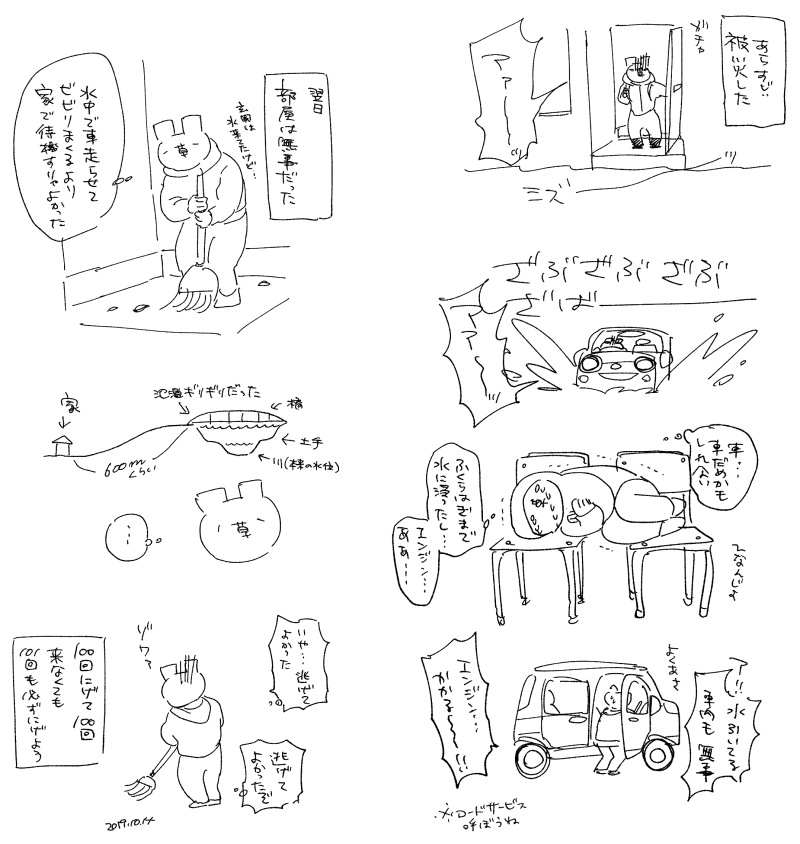 あらすじ:
被災した
ガチャ
アァー〜ッ
ミズ
ざぶざぶざぶ
ざば
アァー〜ッ
車…
車だめかも
しれない
ふくらはぎまで
水に浸ったし…
エンジン…
ああ…
ひなんじょ
よくあさ
ア!!水引いてる
車内も無事
エンジン…
かかる〜!!
※ロードサービス
呼ぼうね
翌日
部屋は無事だった
玄関は
水来てたけど…
水中で車走らせて
ビビりまくるより
家で待機すりゃよかった
草
家
氾濫ギリギリだった
橋
土手
川(本来の水位)
600mくらい
草
…
いや…逃げて
よかった
ゾワァ
逃げて
よかったぞ
100回にげて100回
来なくても
101回も必ずにげよう
2019.10.14